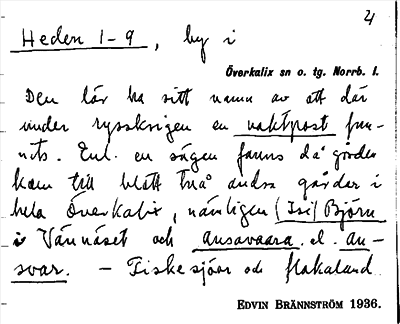 4
Heden 1-9, by i
Överkalix sn o. tg. Norrb. l.
Den lär ha sitt namn av att där
under rysskrigen en vaktpost fun-
nits. Enl. en sägen fanns då gården
kom till blott två andra gårdar i
hela Överkalix, nämligen (Isi) Björn
i Vännäset och Ansavaara el. An-
svar. - Fiskesjöar och flakaland.
EDVIN BRÄNNSTRÖM 1936.